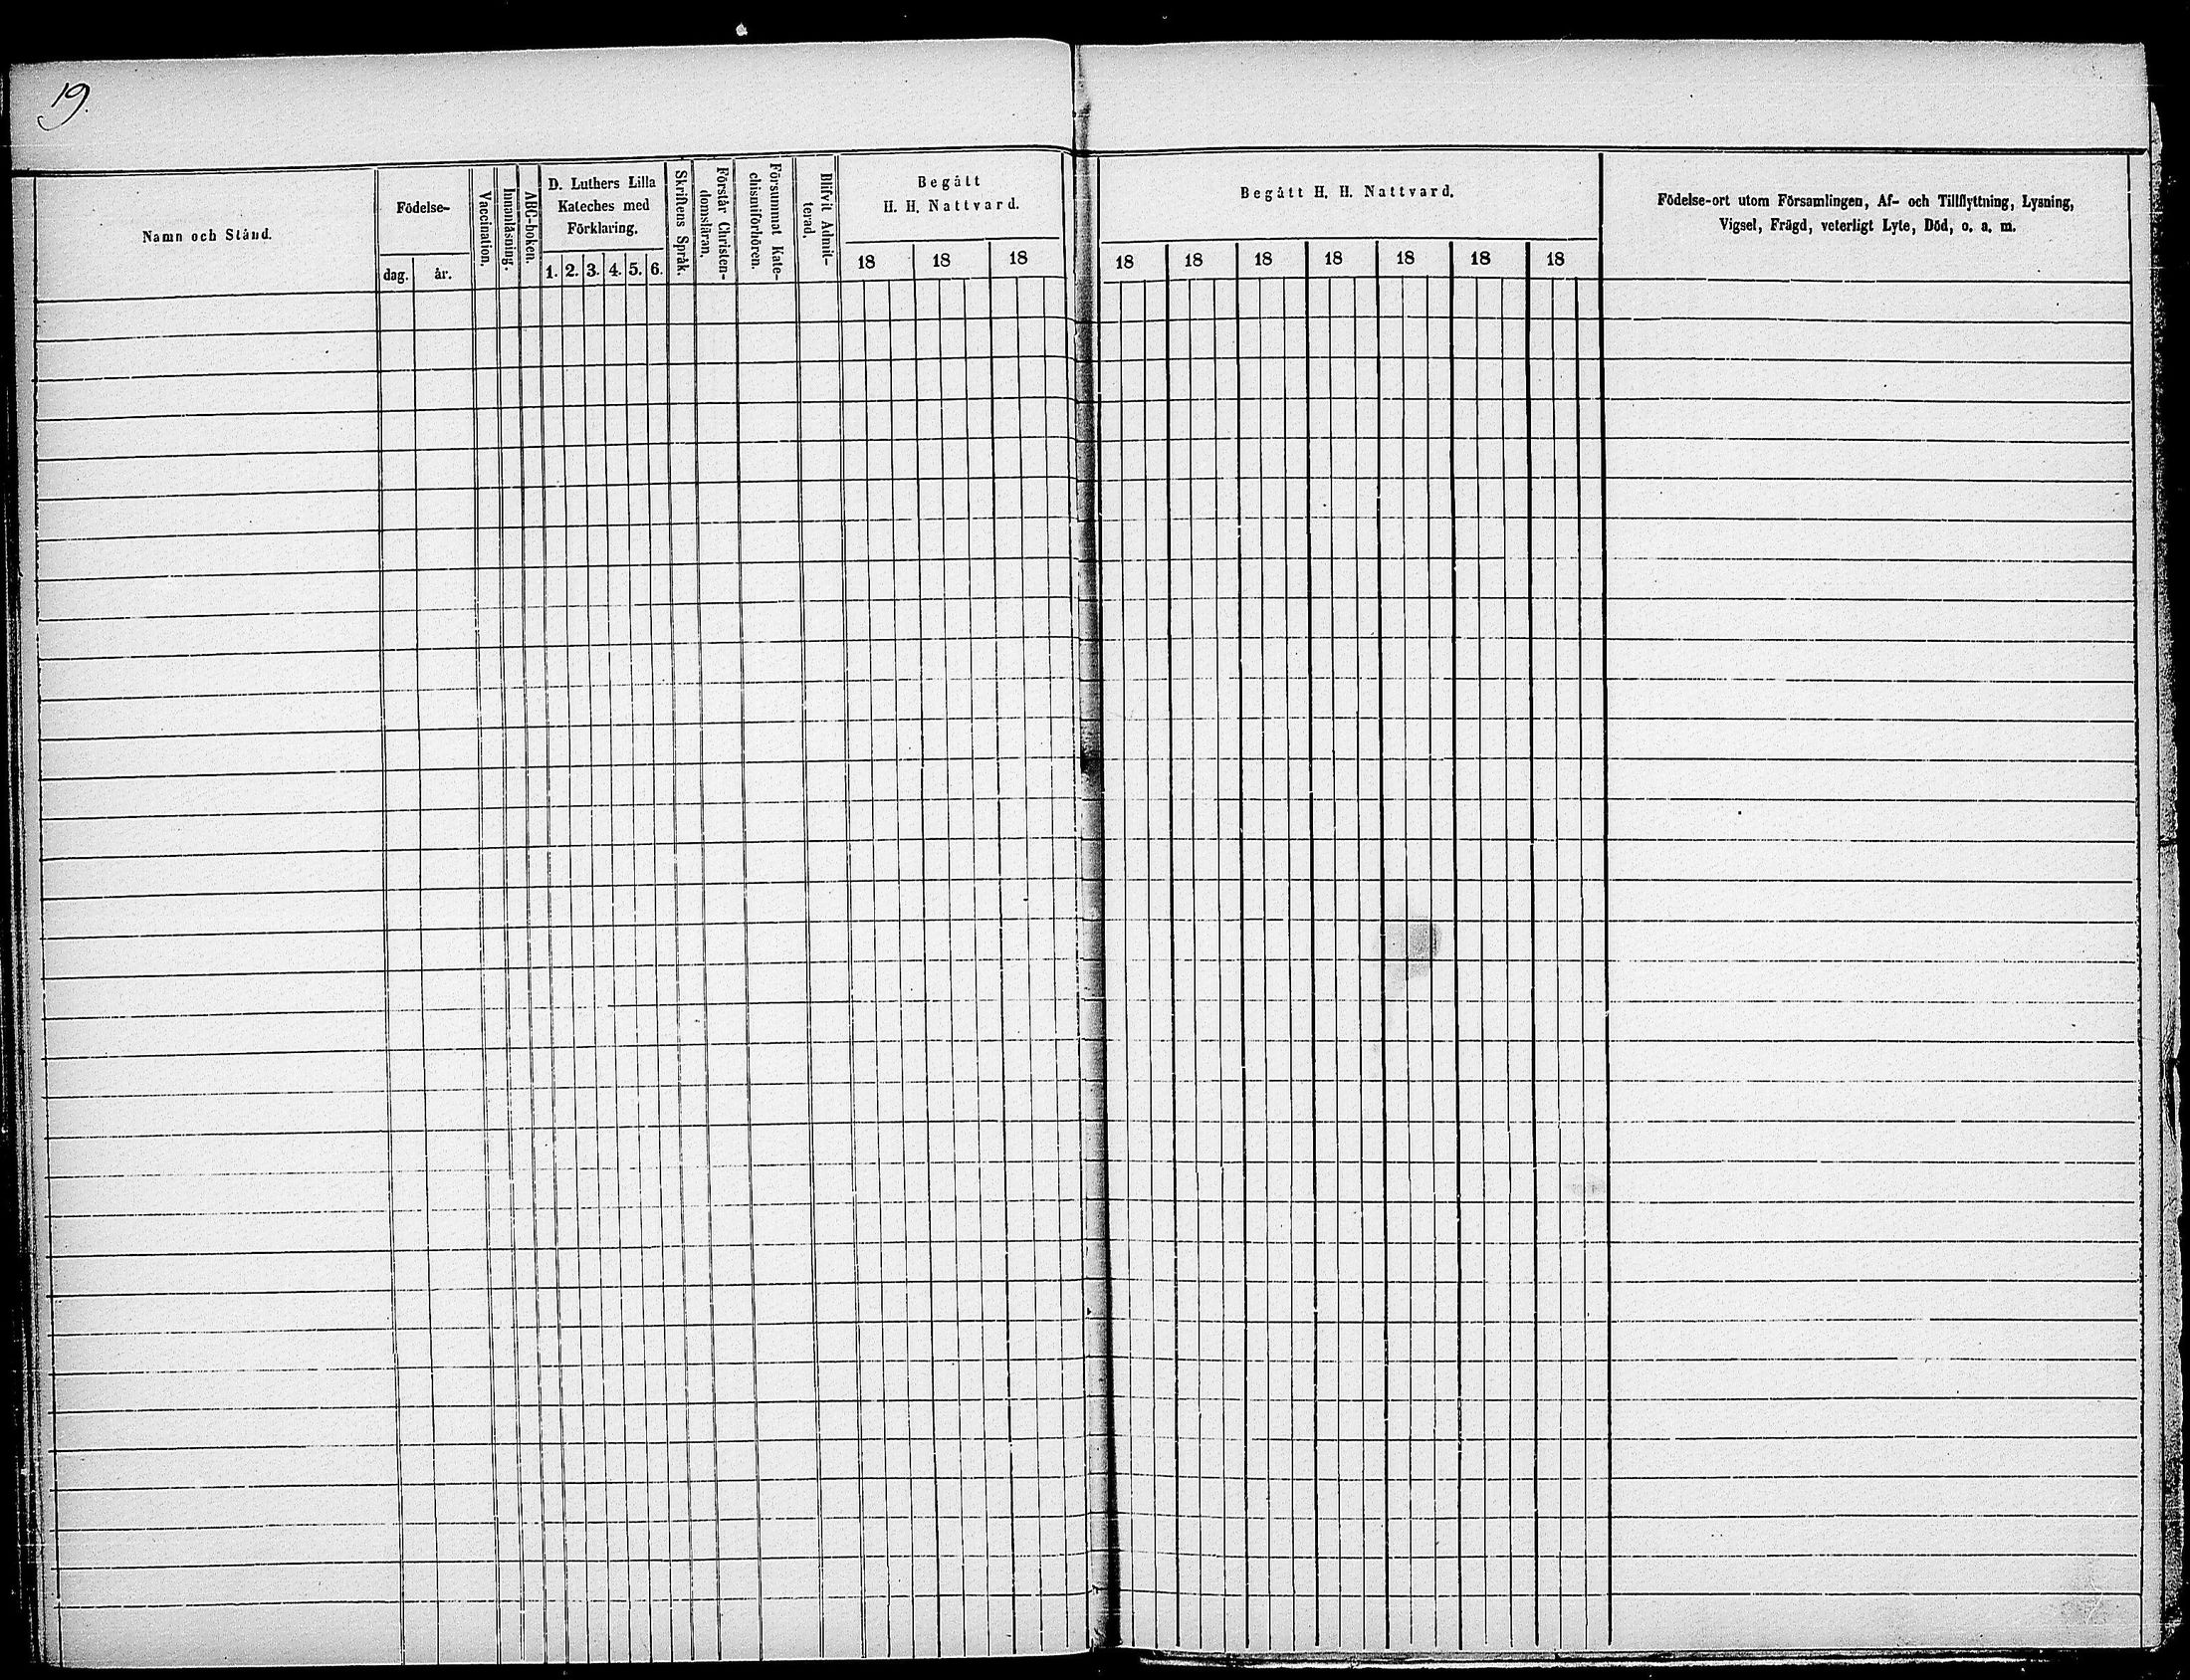 19.
Namn och Stånd.
Födelse-
dag.
år.
Vaccination.
Innanläsning.
ABC-boken.
D. Luthers Lilla
Kateches med
Förklaring.
1. 2. 3. 4. 5. 6.
Skriftens Språk.
Förstår Christen-
domsläran.
Försummat Kate-
chismiförhören.
Blifvit Admit-
terad.
Begått
H. H. Nattvard.
18 18 18
Begått H. H. Nattvard.
18 18 18 18 18 18 18
Födelse-ort utom Församlingen, Af- och Tillflyttning, Lysning,
Vigsel, Frägd, veterligt Lyte, Död, o. a. m.